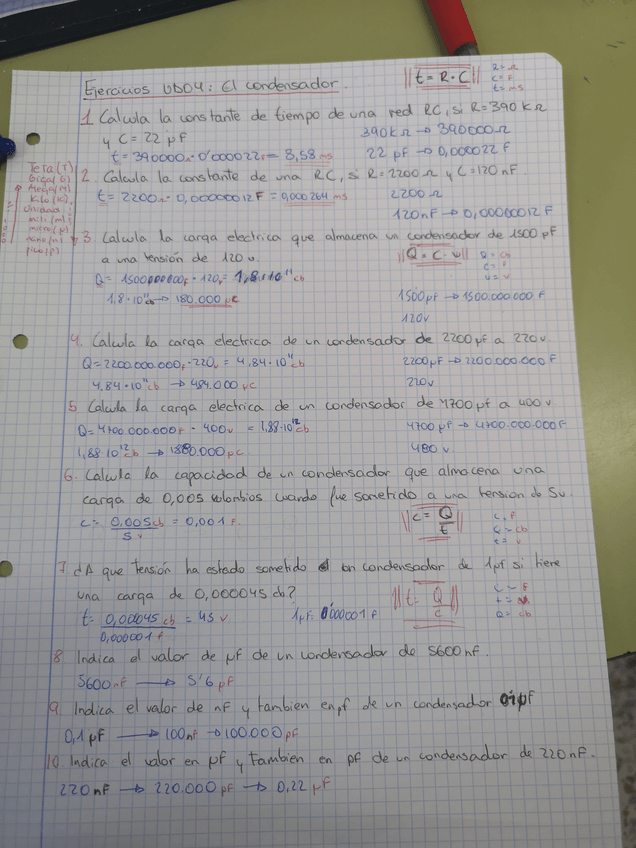 Ejercicios UD04: El condensador.
||t = R · C||
R = Ω
C = F
t = ms
1 Calcula la constante de tiempo de una red RC, si R = 390 KΩ
y C = 22 µF
390KΩ → 390000Ω
t = 390000Ω · 0'000022F = 8,58 ms
22 µF → 0,000022 F
Tera (T)
Giga (G)
Mega (M)
Kilo (K)
Unidad
mili (m)
micro (µ)
nano (n)
pico (p)
2. Calcula la constante de una RC, si R = 2200 Ω y C = 120 nF
t = 2200Ω · 0,00000012 F = 0,000264 ms
2200 Ω
120nF → 0,00000012 F
3. Calcula la carga electrica que almacena un condensador de 1500 µF
a una tensión de 120 v.
||Q = C · v||
Q = cb
C = F
v = v
Q = 1500000000F · 120v = 1,8·10¹¹ cb
1500µF → 1500.000.000 F
1,8·10¹¹ cb → 180.000 µC
120v
4. Calcula la carga electrica de un condensador de 2200µF a 220v.
Q = 2200.000.000F · 220v = 4,84·10¹¹ cb
2200µF → 2200.000.000 F
4,84·10¹¹ cb → 484.000 µC
220v
5 Calcula la carga electrica de un condensador de 4700 µF a 400 v.
Q = 4700.000.000F · 400v = 1,88·10¹² cb
4700 µF → 4700.000.000 F
1,88·10¹² cb → 1880.000 µC
480v
6. Calcula la capacidad de un condensador que almacena una
carga de 0,005 colombios cuando fue sometido a una tension de 5v.
C = 0,005cb / 5v = 0,001 F
||C = Q/t||
C. F
Q = cb
t = v
7 ¿A que tensión ha estado sometido un condensador de 1µF si tiene
una carga de 0,000045 cb?
t = 0,00045 cb / 0,000001 F = 45 v
1µF. 0'000001 F
||t = Q/C||
C = F
Q = cb
8 Indica el valor de µF de un condensador de 5600nF.
5600 nF → 5'6 µF
9 Indica el valor de nF y tambien en pF de un condensador 0,1µF
0,1 µF → 100nF → 100.000 pF
10 Indica el valor en µF y tambien en pF de un condensador de 220nF.
220 nF → 220.000 pF → 0,22 µF